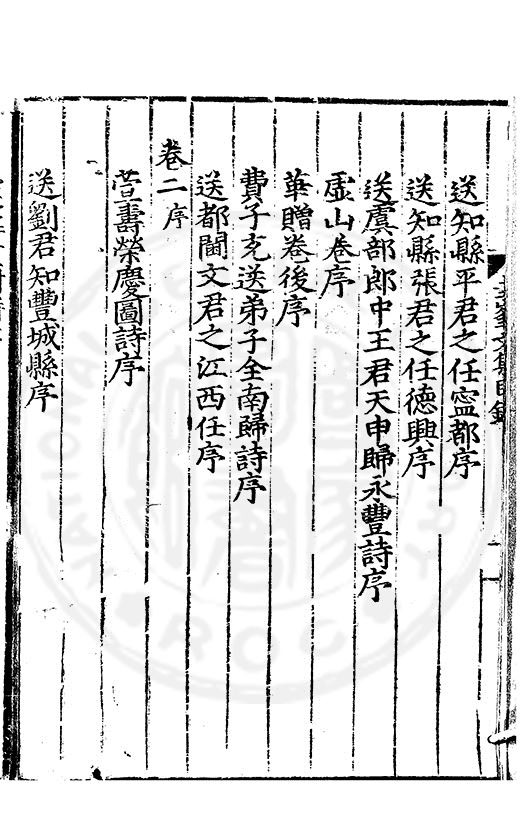 送知縣平君之任寍都序
送知縣張君之任德興序
送虞部郎中王君天申歸永豐詩序
虛山卷序
華贈卷後序
費子充送弟子全南歸詩序
送都閫文君之江西任序
卷二 序
萱壽榮慶圖詩序
送劉君知豐城縣序